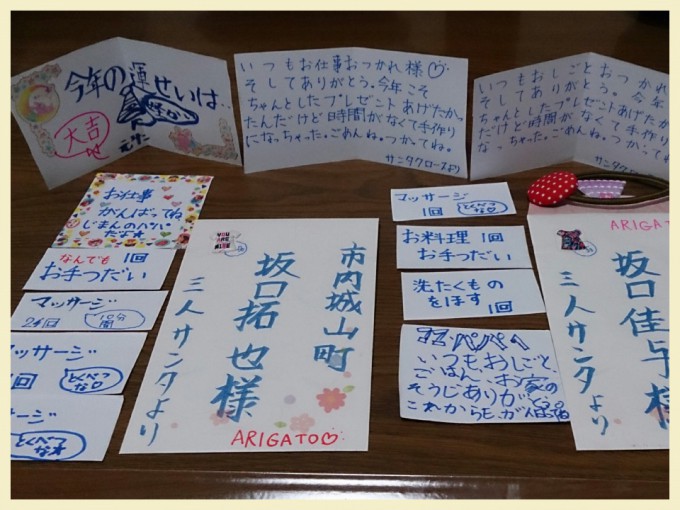 今年の運せいは…
大吉
いつもお仕事おつかれ様♡
そしてありがとう。今年こそ
ちゃんとしたプレゼントあげたか。
たんだけど時間がなくて手作り
になっちゃった。ごめんね。つかってね。
サンタクロースより
いつもおしごとおつかれ
そしてありがとう。今年
ちゃんとしたプレゼントあげたか
だけど時間がなくて手作り
なっちゃった。ごめんね。つかってね
サンタクロース
お仕事
がんばってね
じまんのパパ
だよ
なんでも 1回
お手つだい
マッサージ
24回 10分間
マッサージ
1回 とくべつな日
マッサージ
市内城山町
坂口拓也様
三人サンタより
ARIGATO♡
マッサージ
1回 とくべつな日
お料理 1回
お手つだい
洗たくもの
をほす 1回
いつもおしごと、
ごはん、お家の
そうじありがとう。
これからも、がんばってね
ARIGAT
坂口佳与様
三人サンタより